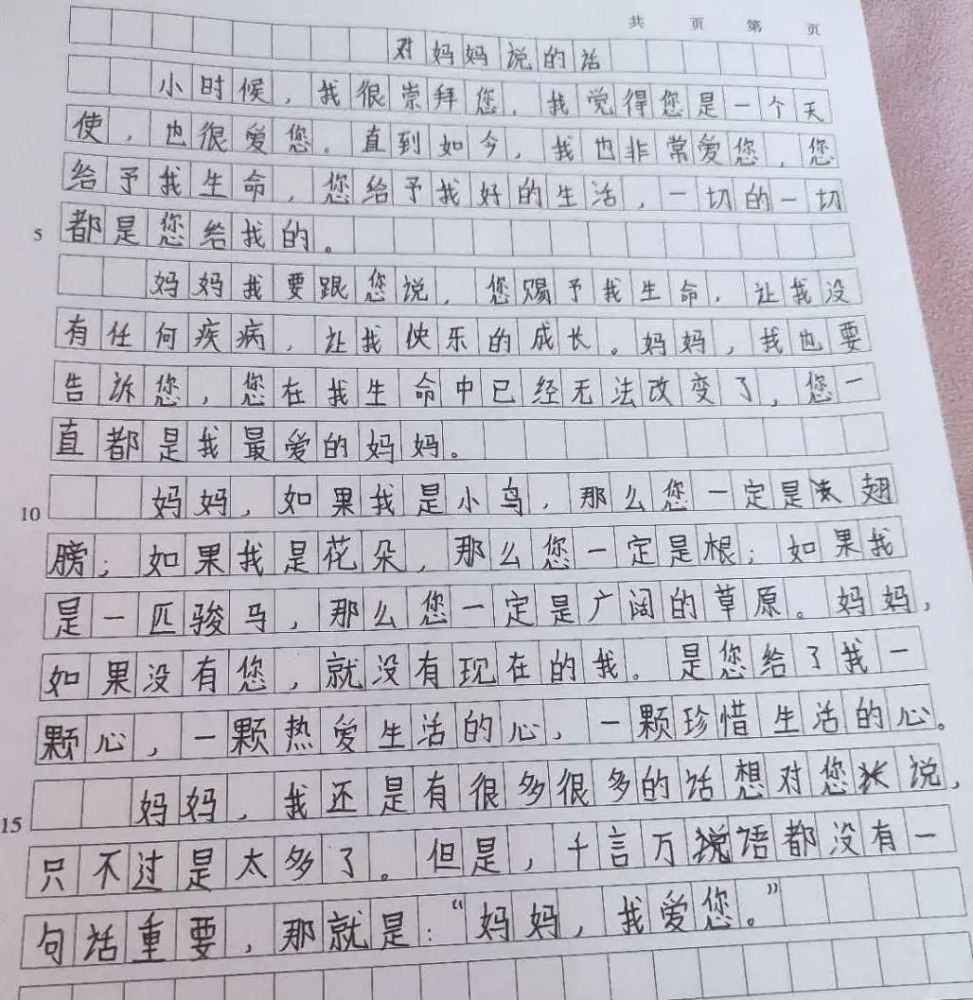 共 页 第 页
对妈妈说的话
小时候，我很崇拜您，我觉得您是一个天
使，也很爱您。直到如今，我也非常爱您，您
给予我生命，您给予我好的生活，一切的一切
5 都是您给我的。
妈妈我要跟您说，您赐予我生命，让我没
有任何疾病，让我快乐的成长。妈妈，我也要
告诉您，您在我生命中已经无法改变了，您一
直都是我最爱的妈妈。
10 妈妈，如果我是小鸟，那么您一定是翅
膀；如果我是花朵，那么您一定是根；如果我
是一匹骏马，那么您一定是广阔的草原。妈妈，
如果没有您，就没有现在的我。是您给了我一
颗心，一颗热爱生活的心，一颗珍惜生活的心。
15 妈妈，我还是有很多很多的话想对您说，
只不过是太多了。但是，千言万语都没有一
句话重要，那就是：“妈妈，我爱您。”